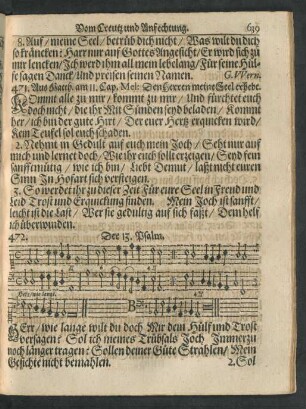 Vom Creutz und Anfechtung. 639
8. Auf / meine Seel / betrüb dich nicht / Was wilt du dich
so kräncken: Harr nur auf Gottes Angesicht / Er wird sich zu
mir lencken / Ich werd ihm all mein lebelang / Für seine Hülf-
fe sagen Danck / Und preisen seinen Namen. G. Wern.
471. Aus Matth. am 11. Cap. Mel: Den Herren meine Seel erhebt.
Kommt alle zu mir / kommt zu mir / Und fürchtet euch
doch nicht / die ihr Mit Sünden seyd beladen / Kommt
her / ich bin der gute Hirt / Der eur Hertz erquicken wird /
Kein Teufel sol euch schaden.
2. Nehmt in Gedult auf euch mein Joch / Seht nur auf
mich und lernet doch / Wie ihr euch sollt erzeigen / Seyd fein
sanfftmütig / wie ich bin / Liebt Demut / laßt nicht euren
Sinn In Hofart sich versteigen.
3. So werdet ihr zu dieser Zeit Für eure Seel in Freud und
Leid Trost und Erquickung finden. Mein Joch ist sanfft /
leicht ist die Last / Wer sie gedultig auf sich faßt / Dem helf
ich überwinden.
472. Der 13. Psalm.
Herr / wie lang.
HErr / wie lange wilt du doch Mir dein Hülf und Trost
versagen? Sol ich meines Trübsals Joch Immerzu
noch länger tragen? Sollen deiner Güte Strahlen / Mein
Gesichte nicht bemahlen. 2. Sol